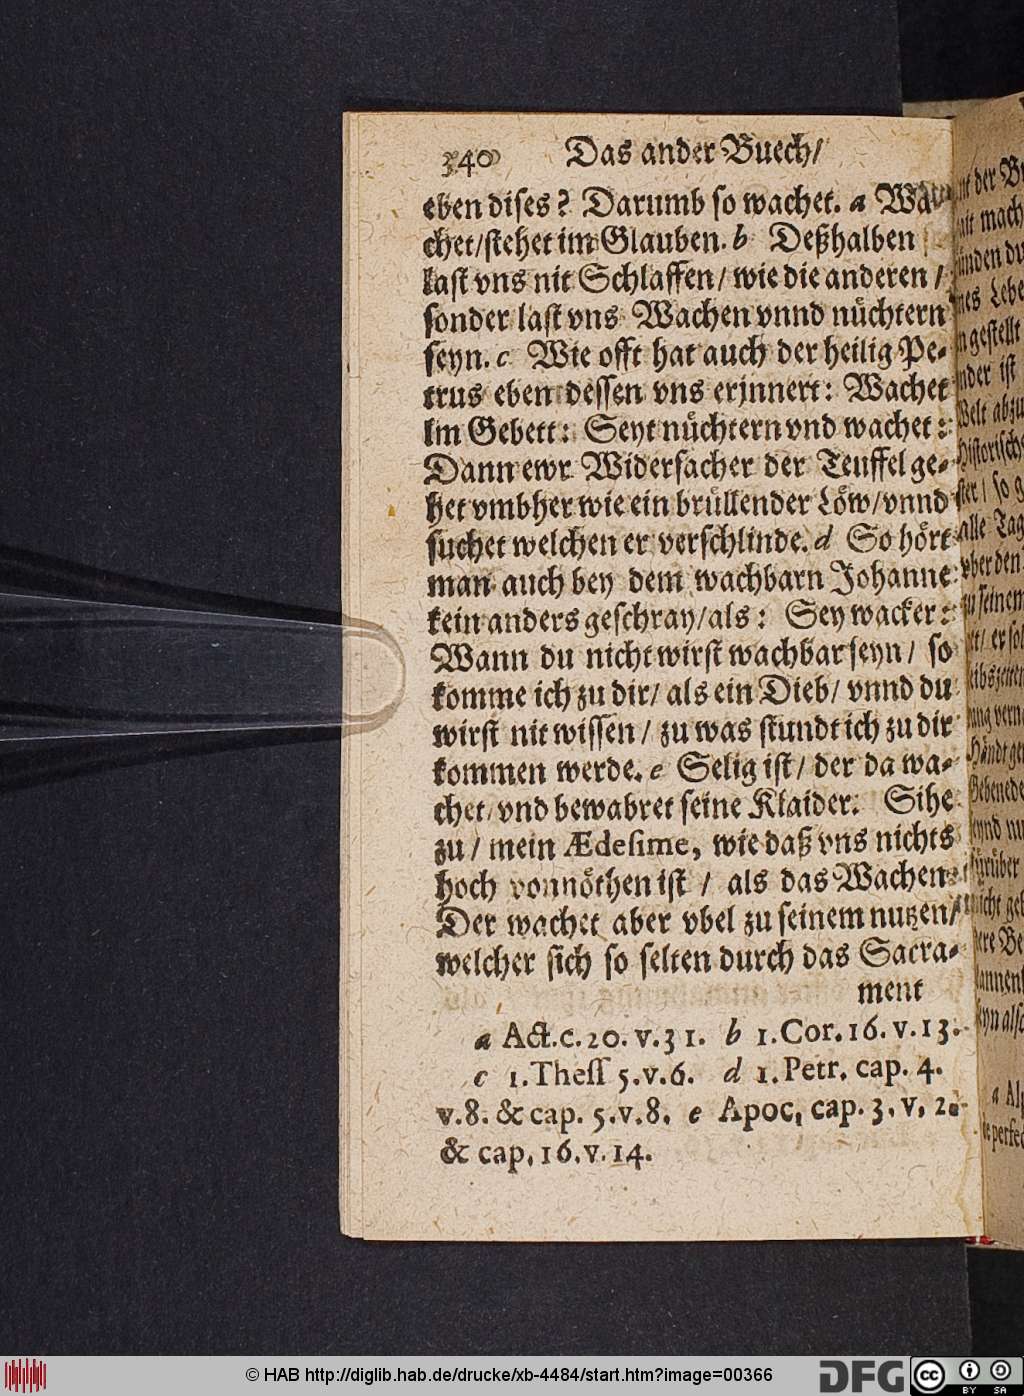 340 Das ander Buech/
eben dises? Darumb so wachet. a Wa-
chet/stehet im Glauben. b Deßhalben
last vns nit Schlaffen/ wie die anderen /
sonder last vns Wachen vnnd nüchtern
seyn. c Wie offt hat auch der heilig Pe-
trus eben dessen vns erjnnert: Wachet
im Gebett: Seyt nüchtern vnd wachet:
Dann ewr Widersacher der Teuffel ge-
het vmbher wie ein brüllender Löw/vnnd
suchet welchen er verschlinde. d So hört
man auch bey dem wachbarn Johanne
kein anders geschray/als: Sey wacker:
Wann du nicht wirst wachbar seyn/ so
komme ich zu dir/ als ein Dieb/ vnnd du
wirst nit wissen/ zu was stundt ich zu dir
kommen werde. e Selig ist/ der da wa-
chet/vnd bewabret seine Klaider: Sihe
zu/ mein Ædesime, wie daß vns nichts
hoch vonnöthen ist / als das Wachen
Der wachet aber vbel zu seinem nutzen/
welcher sich so selten durch das Sacra-
ment
a Act.c.20.v.31. b 1.Cor.16.v.13.
c 1.Thess 5.v.6. d 1.Petr. cap. 4.
v.8. & cap. 5.v.8. e Apoc, cap.3.v, 2.
& cap.16.v.14.
nt der
mach
ünden
nes Lebe
gestellt
nder ist
Welt
so
alle Tag
vber den
zu seinem
nicht
a
© HAB http://diglib.hab.de/drucke/xb-4484/start.htm?image=00366
DFG
cc
BY SA